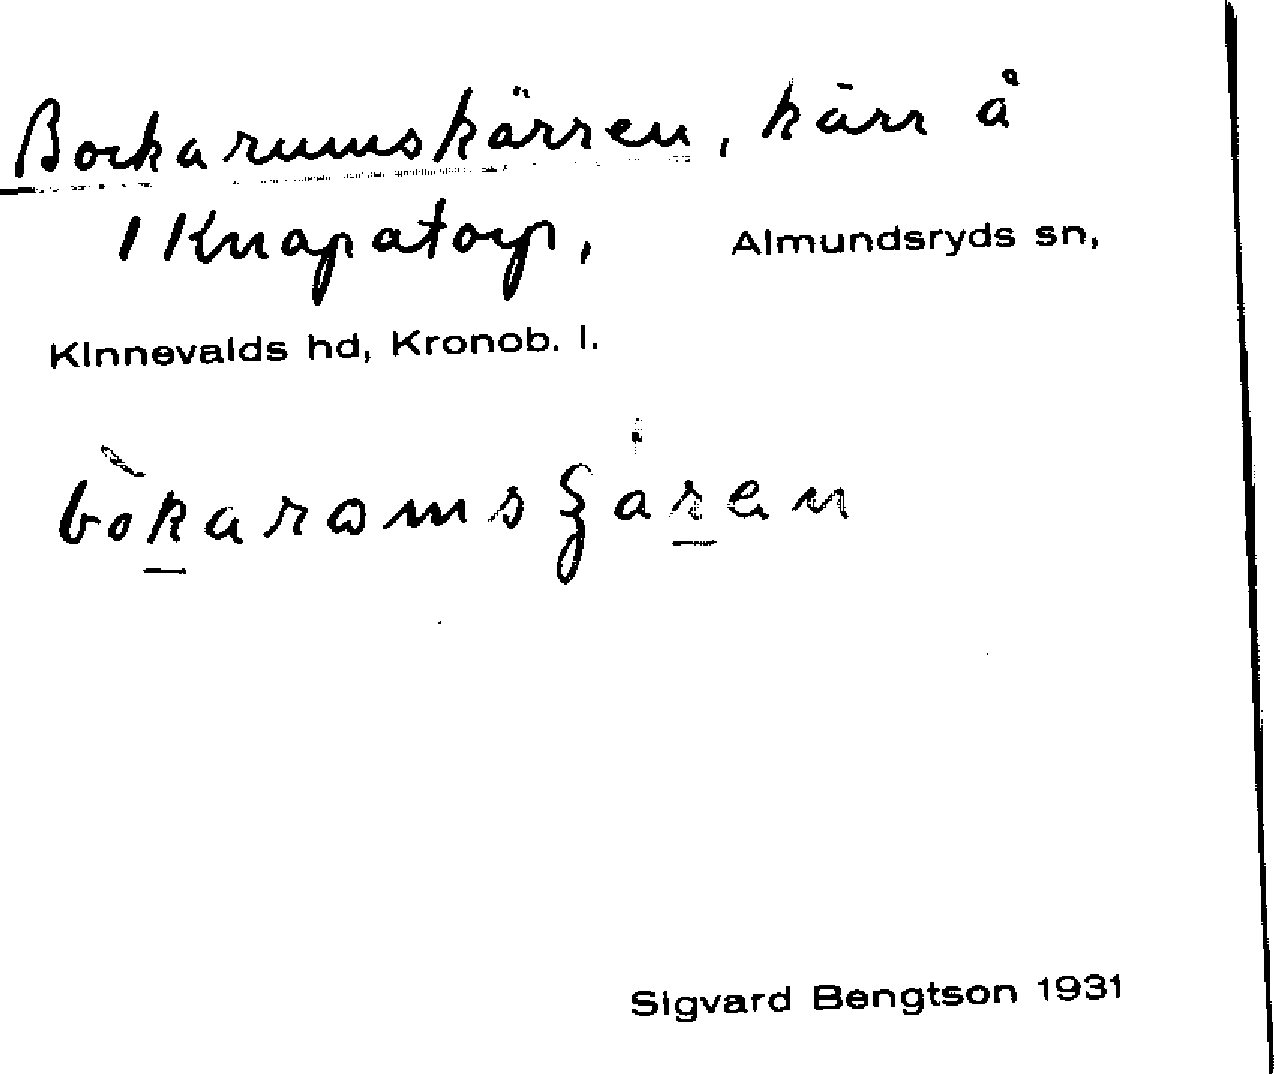 Bockarumskärren, kärr å
1 Knapatorp, Almundsryds sn,
Kinnevalds hd, Kronob. l.
Sigvard Bengtson 1931